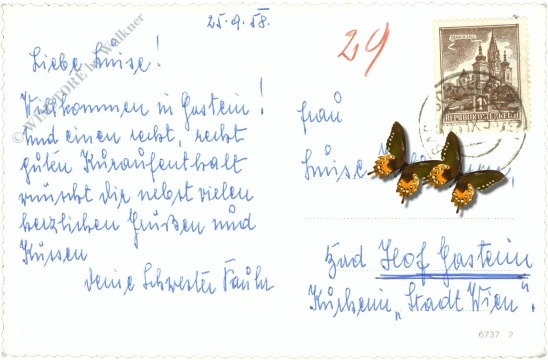 25.9.58.
Liebe Luise!
Willkommen in Gastein!
Und einen recht, recht
guten Kuraufenthalt
wünscht dir nebst vielen
herzlichen Grüßen und
Küssen
deine Schwester
29
REPUBLIK ÖSTERREICH
Frau
Luise
Bad Hof Gastein
Kurheim „Stadt Wien".
6737 2
© WIKISTORE by Walkner